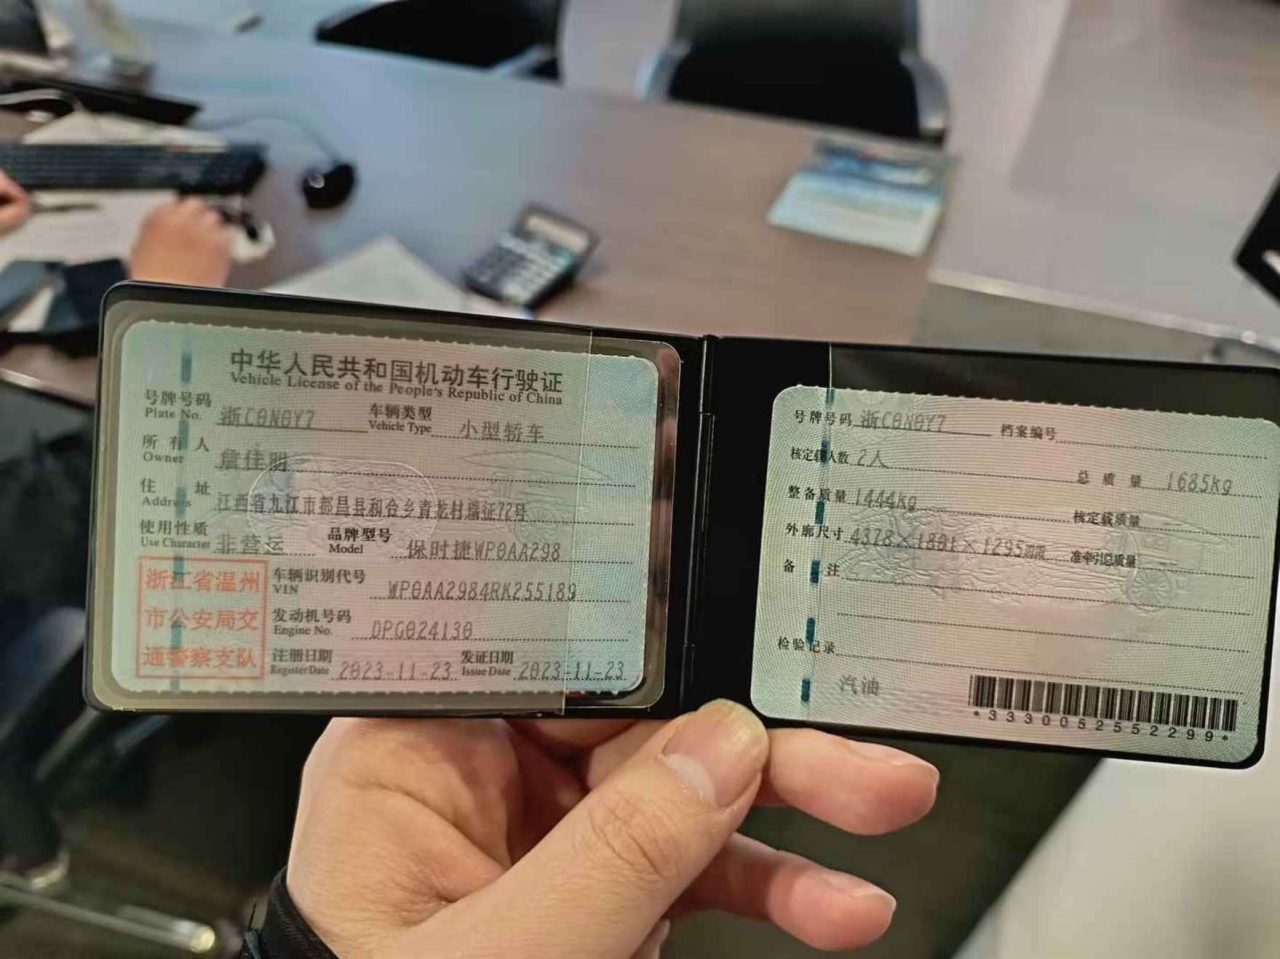 中华人民共和国机动车行驶证
Vehicle License of the People's Republic of China
号牌号码 浙C0N0Y7 车辆类型 小型轿车
Plate No. Vehicle Type
所有人 詹佳明
Owner
住址 江西省九江市都昌县和合乡青龙村瑞征72号
Address
使用性质 非营运 品牌型号 保时捷WP0AA298
Use Character Model
浙江省温州
市公安局交
通警察支队
车辆识别代号 WP0AA2984RK255189
VIN
发动机号码 DPG024130
Engine No.
注册日期 2023-11-23 发证日期 2023-11-23
Register Date Issue Date
号牌号码 浙C0N0Y7 档案编号
核定载人数 2人 总质量 1685kg
整备质量 1444kg 核定载质量 --
外廓尺寸 4378×1801×1295mm 准牵引总质量 --
备注
检验记录
汽油
*3330052552299*